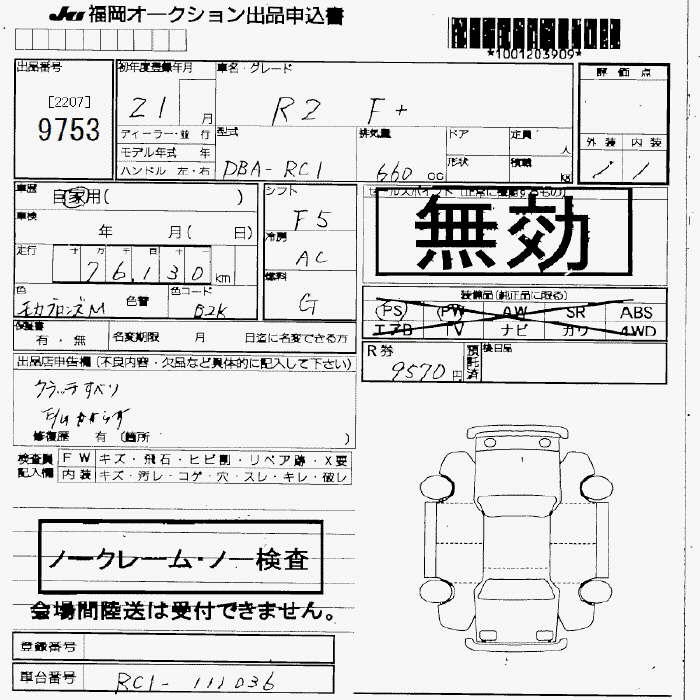 JU 福岡オークション出品申込書
*1001203909*
出品番号
[2207]
9753
初年度登録年月
21 月
ディーラー・並 行
モデル年式 年
ハンドル 左・右
車名・グレード
R2 F+
型式
DBA-RC1
排気量
660 CC
ドア
形状
定員 人
積載 KG
評価点
外装 内装
/ /
車歴
自家用( )
車検
年 月( 日)
走行
十 万 千 百 十
76,130 km
色
モカブロンズM
色替
色コード
B2K
シフト
F5
冷房
AC
燃料
G
セールスポイント(正常に稼動するもの)
無効
装備品(純正品に限る)
PS PW AW SR ABS
エアB TV ナビ カワ 4WD
保証書
有・無
名変期限 月 日迄に名変できる方
R券
9570円
預託済
後日品
出品店申告欄(不良内容・欠品など具体的に記入して下さい)
クラッチすべり
修復歴 有 (箇所 )
検査員記入欄
FW キズ・飛石・ヒビ割・リペア跡・X要
内装 キズ・汚レ・コゲ・穴・スレ・キレ・破レ
ノークレーム・ノー検査
会場間陸送は受付できません。
登録番号
車台番号
RC1-111036